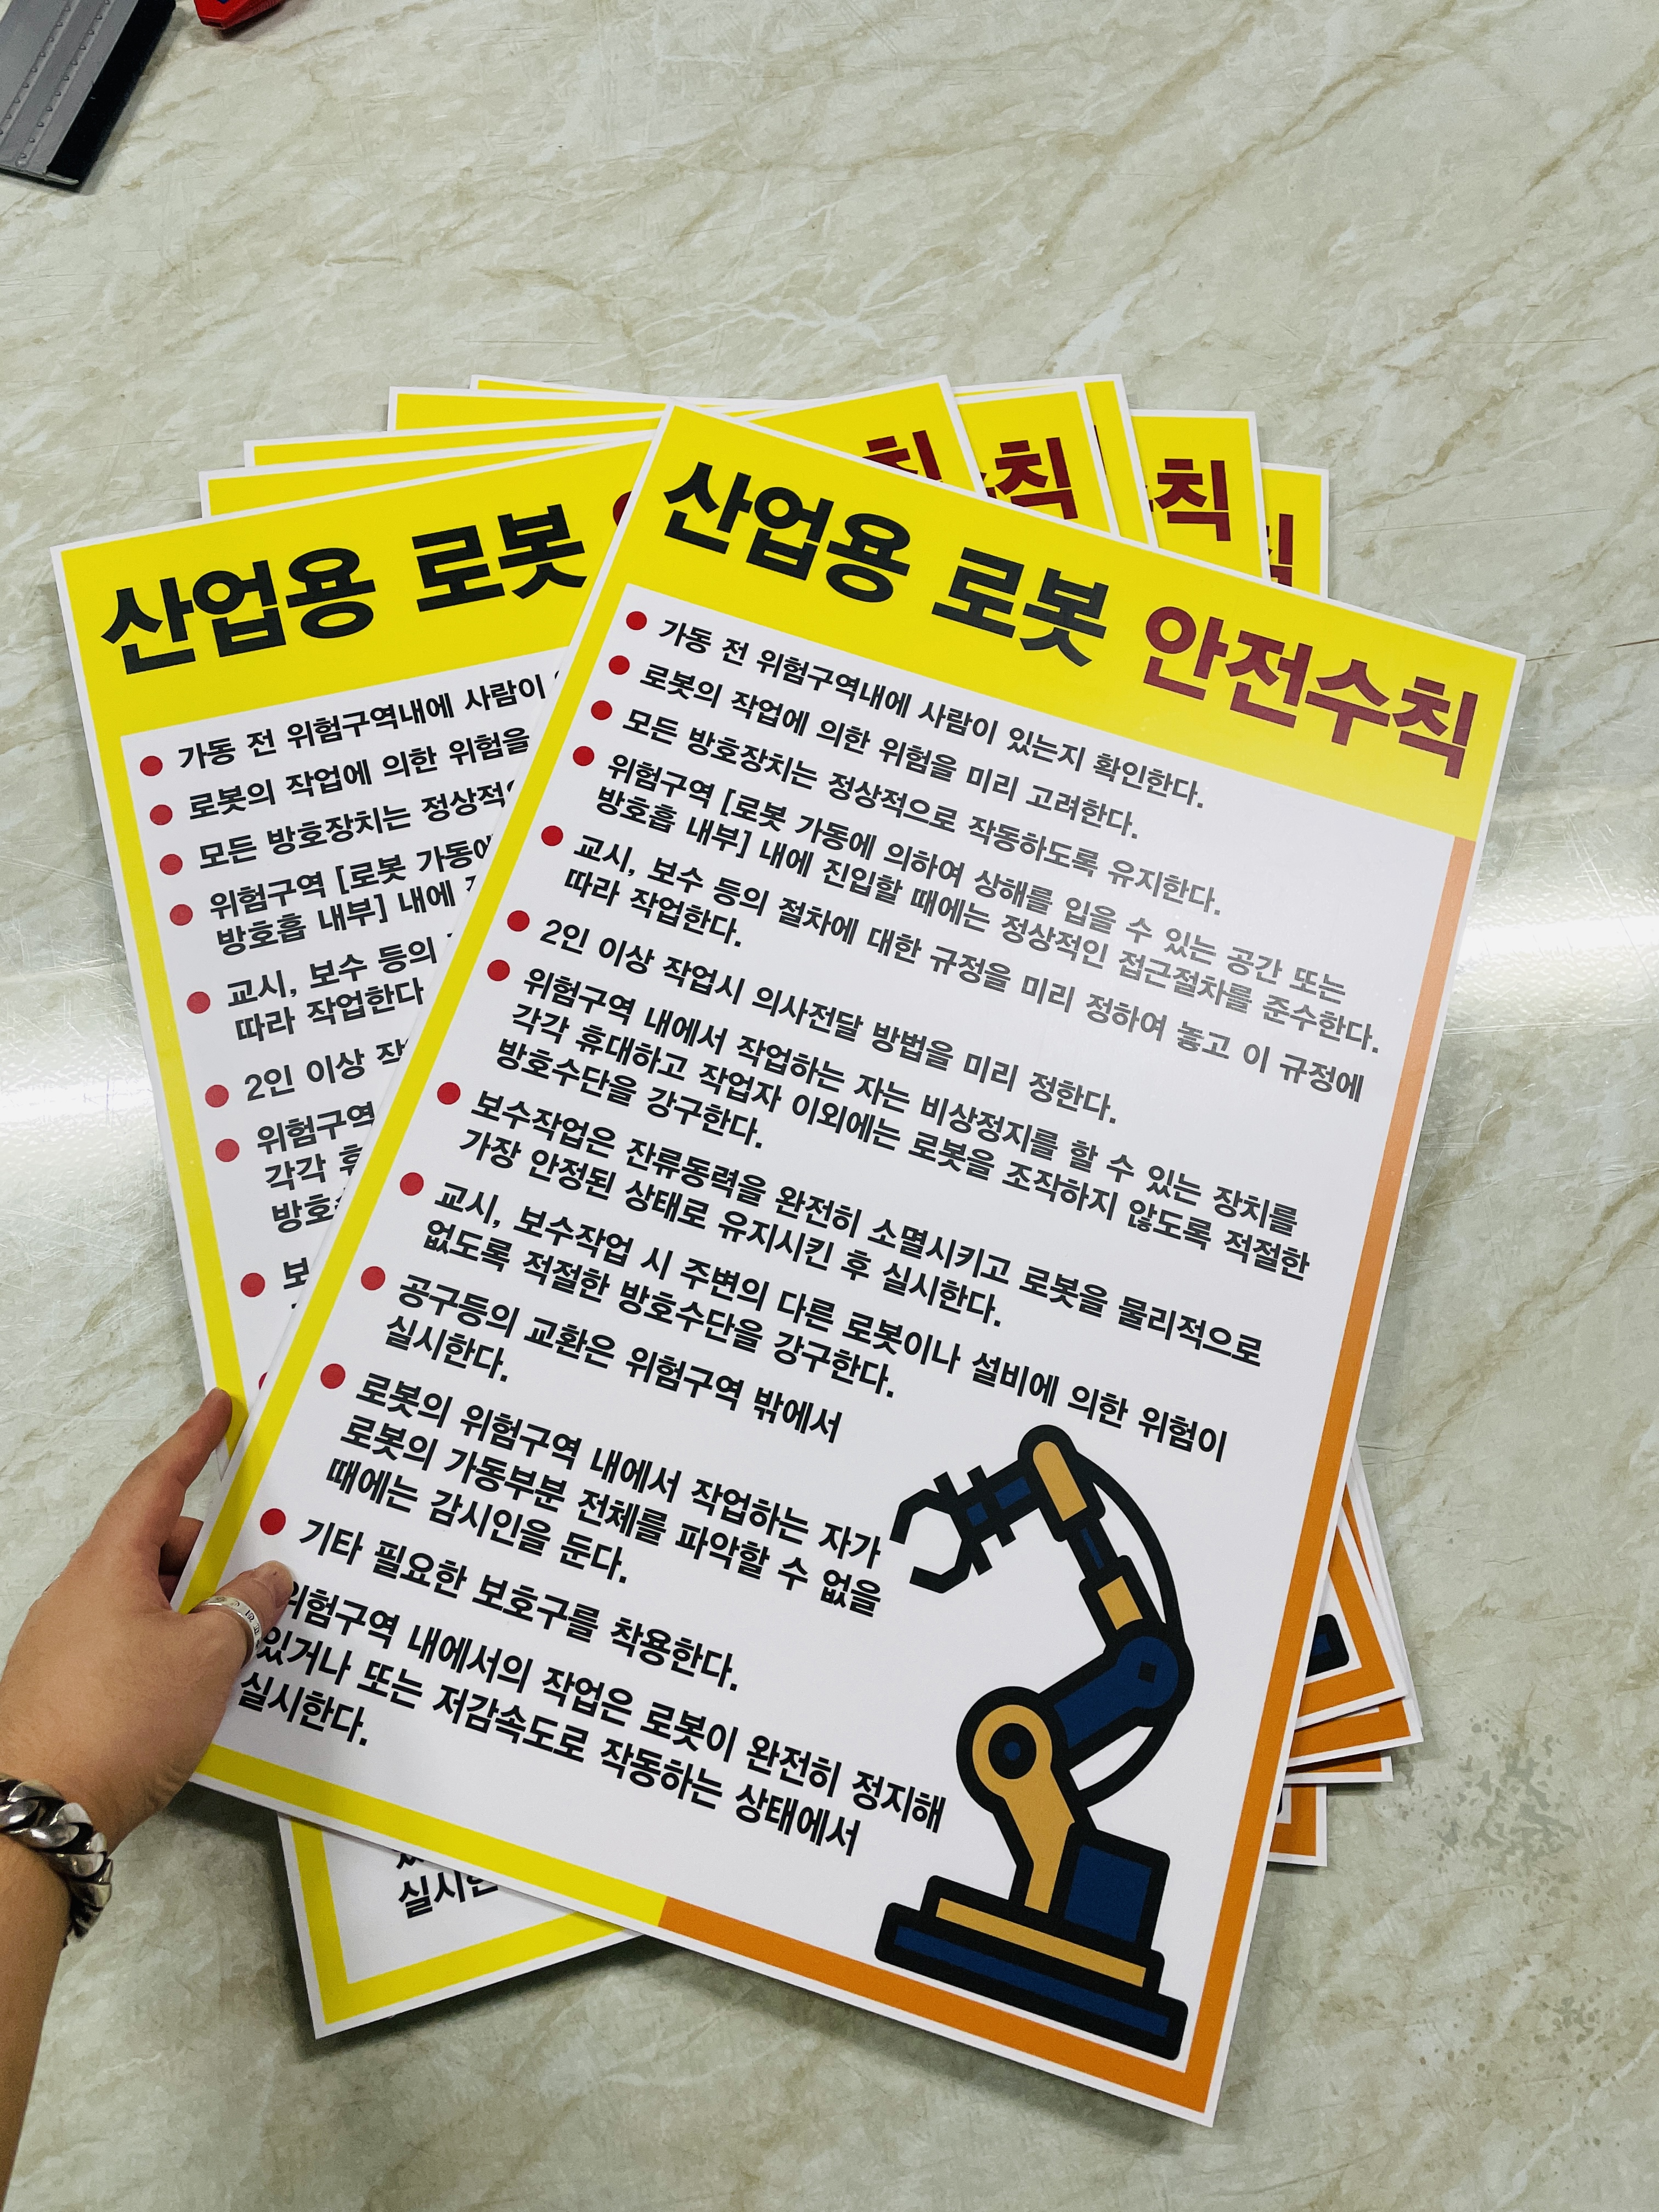 산업용 로봇 안전수칙
가동 전 위험구역내에 사람이 있는지 확인한다.
로봇의 작업에 의한 위험을 미리 고려한다.
모든 방호장치는 정상적으로 작동하도록 유지한다.
위험구역 [로봇 가동에 의하여 상해를 입을 수 있는 공간 또는
방호흡 내부] 내에 진입할 때에는 정상적인 접근절차를 준수한다.
교시, 보수 등의 절차에 대한 규정을 미리 정하여 놓고 이 규정에
따라 작업한다.
2인 이상 작업시 의사전달 방법을 미리 정한다.
위험구역 내에서 작업하는 자는 비상정지를 할 수 있는 장치를
각각 휴대하고 작업자 이외에는 로봇을 조작하지 않도록 적절한
방호수단을 강구한다.
보수작업은 잔류동력을 완전히 소멸시키고 로봇을 물리적으로
가장 안정된 상태로 유지시킨 후 실시한다.
교시, 보수작업 시 주변의 다른 로봇이나 설비에 의한 위험이
없도록 적절한 방호수단을 강구한다.
공구등의 교환은 위험구역 밖에서
실시한다.
로봇의 위험구역 내에서 작업하는 자가
로봇의 가동부분 전체를 파악할 수 없을
때에는 감시인을 둔다.
기타 필요한 보호구를 착용한다.
위험구역 내에서의 작업은 로봇이 완전히 정지해
있거나 또는 저감속도로 작동하는 상태에서
실시한다.
산업용 로봇
가동 전 위험구역내에 사람이
로봇의 작업에 의한 위험을
모든 방호장치는 정상적
위험구역 [로봇 가동에
방호흡 내부] 내에
교시, 보수 등의
따라 작업한다
2인 이상 작
위험구역
각각
방호
보
실시한
칙
칙
칙
칙